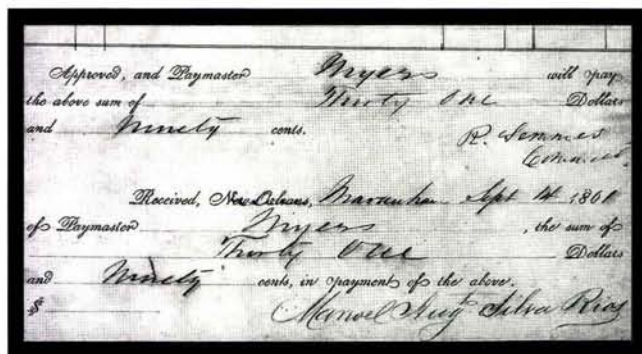 Approved, and Paymaster Myers will pay
the above sum of Thirty One Dollars
and Ninety cents. R. Semmes
Received, New Orleans, Maranham Sept 14 1861
of Paymaster Myers, the sum of
Thirty One Dollars
and Ninety cents, in payment of the above.
$ Manoel Augto Silva Rios